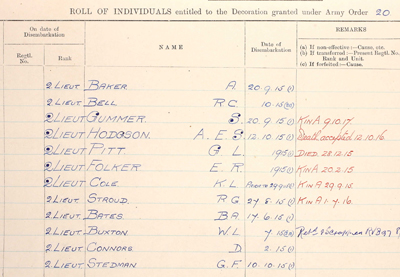 ROLL OF INDIVIDUALS entitled to the Decoration granted under Army Order 20
On date of Disembarkation
Regtl. No.
Rank
NAME
Date of Disembarkation
REMARKS
(a) If non-effective:—Cause, etc.
(b) If transferred:—Present Regtl. No. Rank and Unit.
(c) If forfeited:—Cause.
2 LIEUT BAKER A. 20.9.15
2 LIEUT BELL R C 10.15
2 LIEUT GUMMER S. 20.9.15 K in A 9.10.17
2 LIEUT HODGSON A. E. S. 12.10.15 Death accepted 12.10.16
2 LIEUT PITT G L. 1915 DIED 28.12.15
2 LIEUT FOLKER E R. 1915 K in A 20.2.15
2 LIEUT COLE K L 29.9.15 K in A 29.9.15
2 LIEUT STROUD. R G 27.8.15 K in A 1.7.16.
2 LIEUT BATES. B A. 17.6.15
2 LIEUT BUXTON W L 7.15
2 LIEUT CONNORS D 2.15
2 LIEUT STEDMAN G. F. 10.10.15